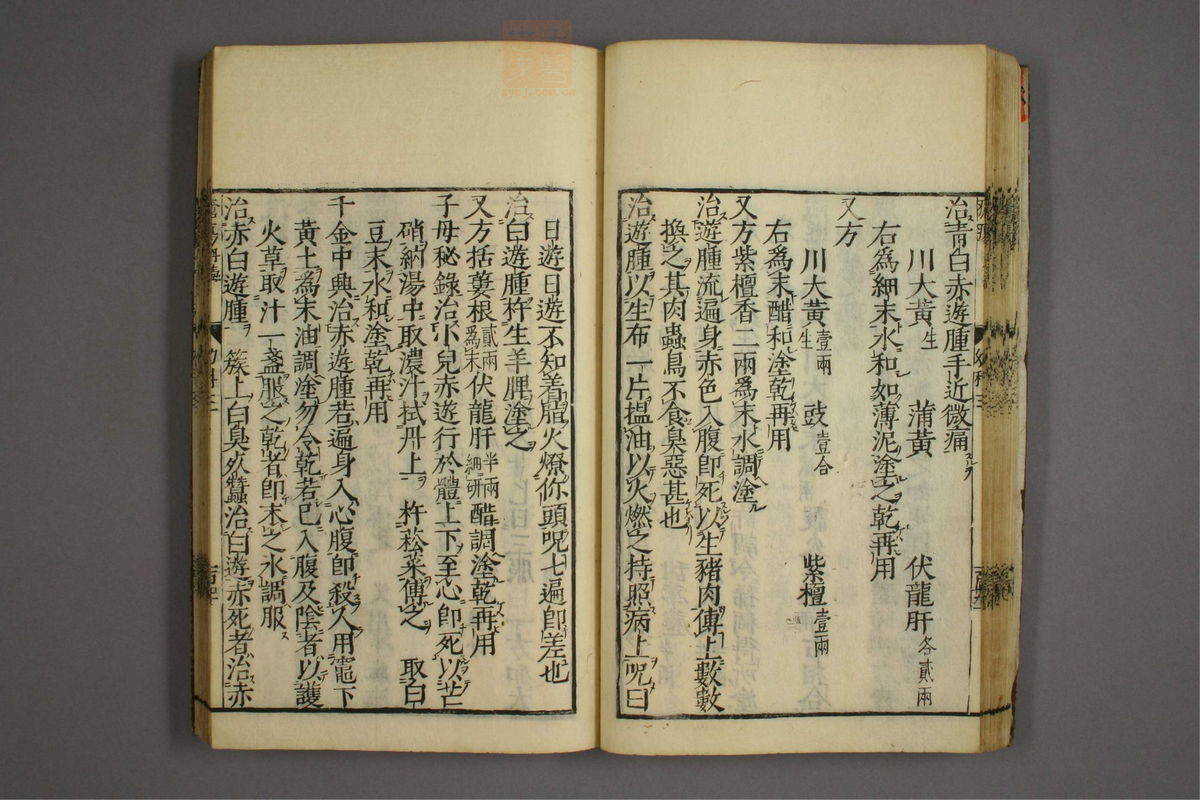 治青白赤遊腫手近微痛
川大黃生　蒲黃　伏龍肝各貳兩
右爲細末水和如薄泥塗之乾再用
又方
川大黃生壹兩　豉壹合　紫檀壹兩
右爲末醋和塗乾再用
又方紫檀香二兩爲末水調塗
治遊腫流遍身赤色入腹卽死以生豬肉傅上數數
換之其肉蟲鳥不食臭惡甚也
治遊腫以生布一片搵油以火燃之持照病上呪曰
日遊日遊不知着脂火燎你頭呪七遍卽差也
治白遊腫杵生羊脾塗之
又方括蔞根貳兩爲末伏龍肝半兩細研醋調塗乾再用
子母秘錄治小兒赤遊行於體上下至心卽死以芒
硝納湯中取濃汁拭丹上　杵菘菜傅之　取白
豆末水和塗乾再用
千金中興治赤遊腫若遍身入心腹卽殺人用竈下
黃土爲末油調塗勿令乾若已入腹及陰者以護
火草取汁一盞服之乾者卽末之水調服
治赤白遊腫　簇上白臭殭蠶治白遊赤死者治赤